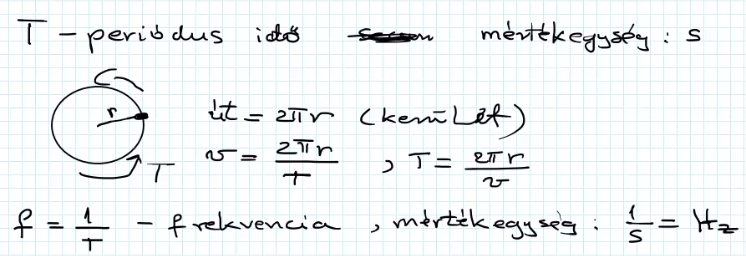 T - periódus idő mértékegység : s
r
út = 2πr (kerület)
T
v = 2πr/T , T = 2πr/v
f = 1/T - frekvencia , mértékegység : 1/s = Hz